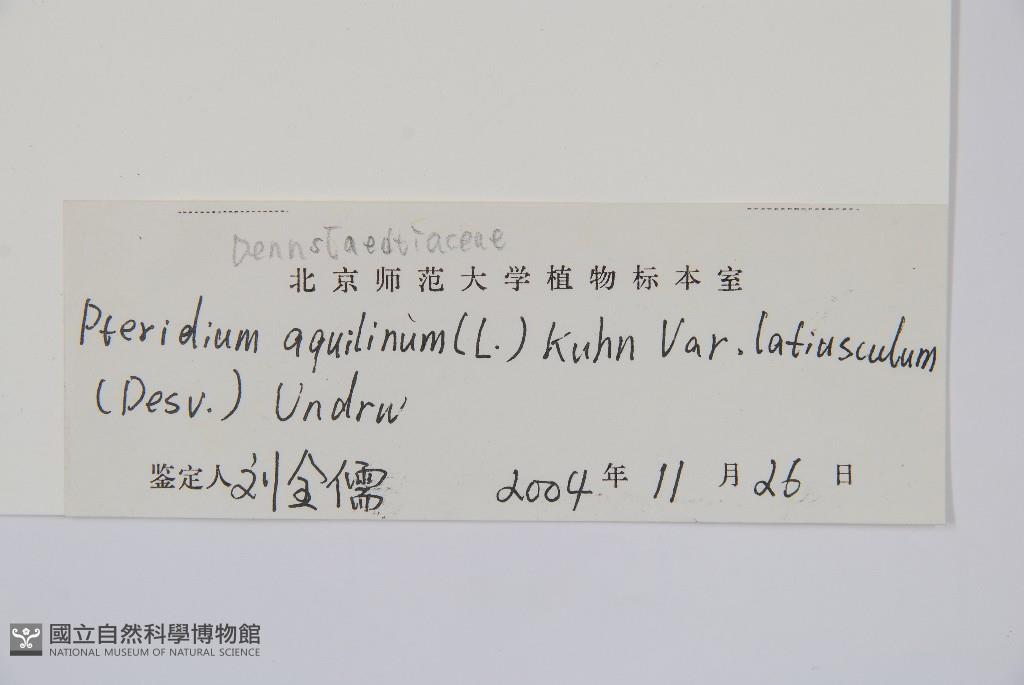 Dennstaedtiaceae
北京师范大学植物标本室
Pteridium aquilinum (L.) Kuhn Var. latiusculum
(Desv.) Undrw
鉴定人 刘全儒 2004 年 11 月 26 日
國立自然科學博物館
NATIONAL MUSEUM OF NATURAL SCIENCE